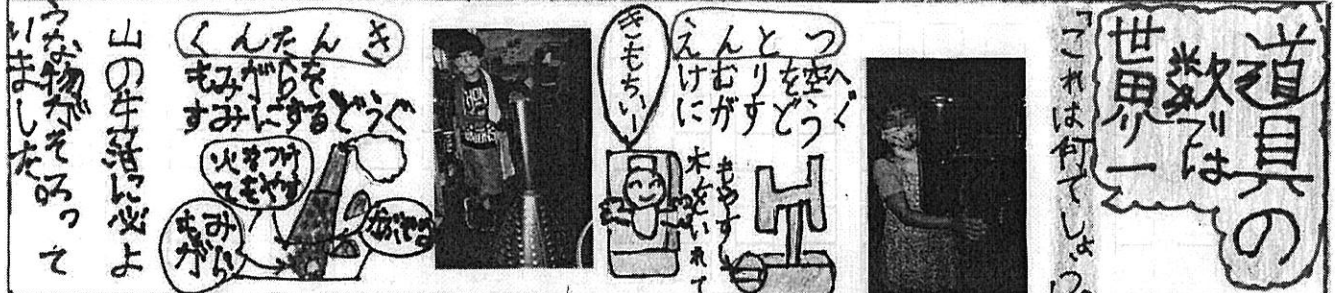 道具の
数では
世界一
「これは何でしょう。
えんとつ
けむりを空へ
にがすどうぐ
もやすし
木をいれて
きもちいー
きたんく
もみがらを
すみにするどうぐ
火をつけ
てもやす
もみ
がら
山の生活に必よ
うな物がそろって
いました。